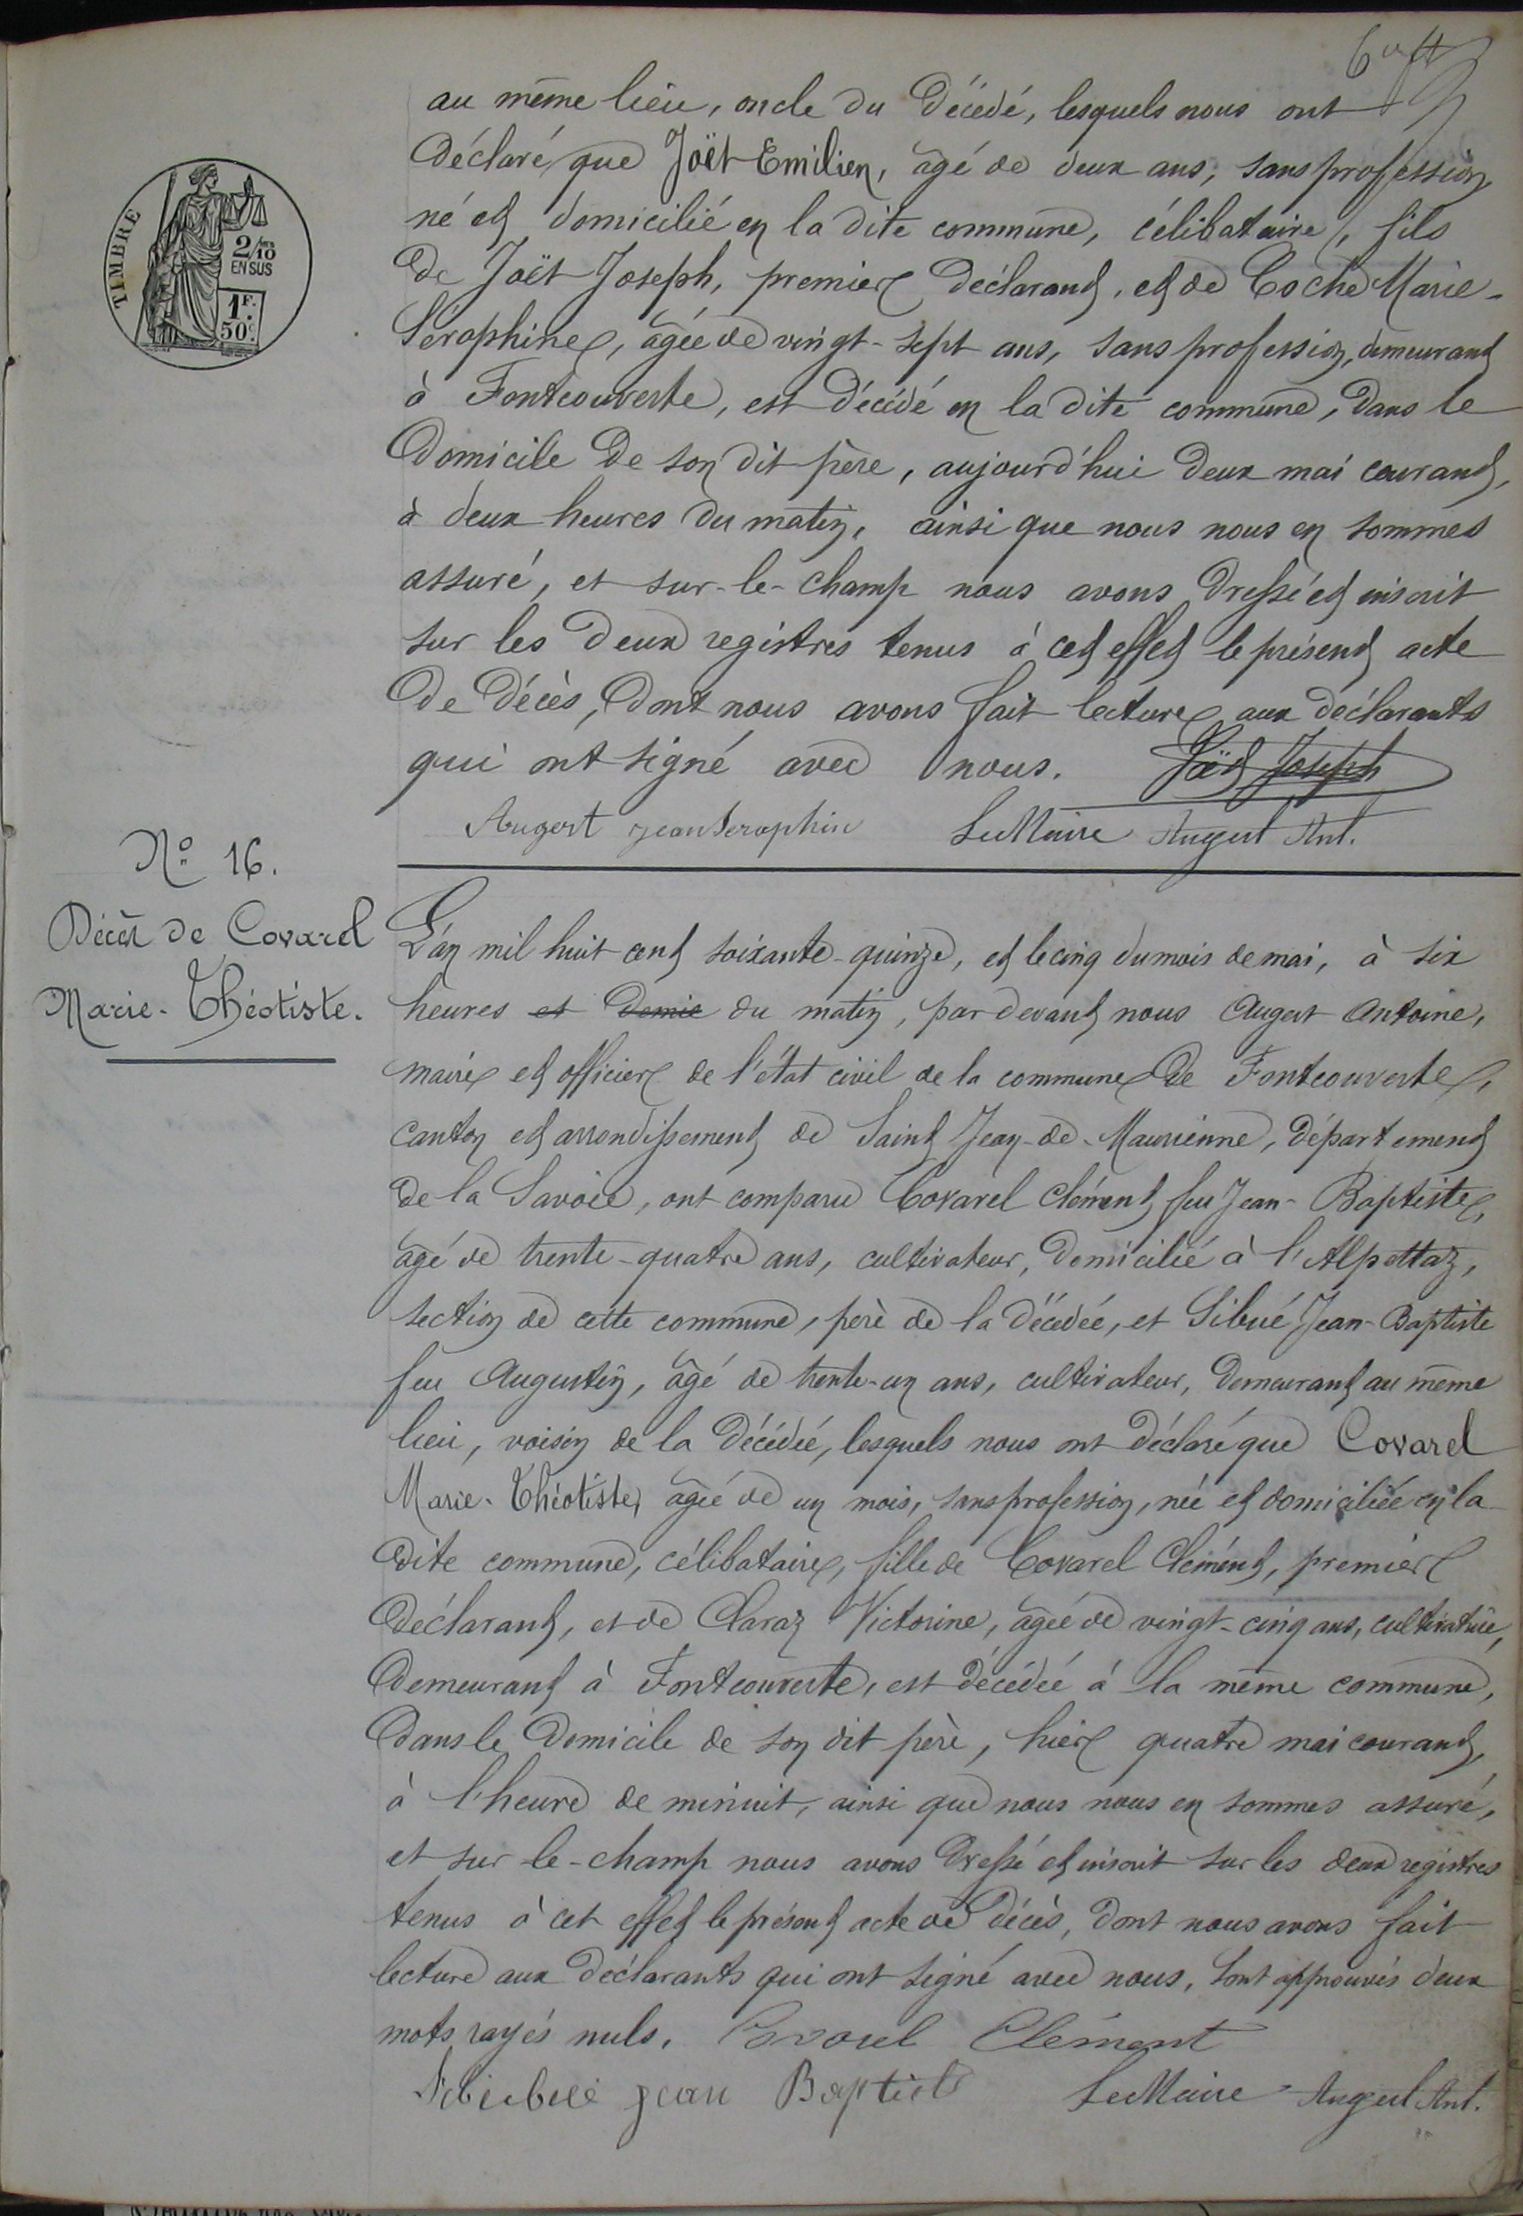 au même lieu, oncle du décédé, lesquels nous ont
déclaré que Joët Emilien, âgé de deux ans, sans profession
né et domicilié en la dite commune, célibataire, fils
de Joët Joseph, premier déclarant, et de Coche Marie-
Séraphine, âgée de vingt-sept ans, sans profession, demeurant
à Fontcouverte, est décédé en la dite commune, dans le
domicile de son dit père, aujourd'hui deux mai courant,
à deux heures du matin, ainsi que nous nous en sommes
assuré, et sur-le-champ nous avons dressé et inscrit
sur les deux registres tenus à cet effet le présent acte
de décès, dont nous avons fait lecture aux déclarants
qui ont signé avec nous. Joët Joseph
Augert jean Seraphin Le Maire Augert Ant.
TIMBRE
2/10
EN SUS
1F.
50c.
No 16.
Décès de Covarel
Marie-Théotiste.
L'an mil huit cent soixante-quinze, et le cinq du mois de mai, à six
heures et demie du matin, par devant nous Augert Antoine,
maire et officier de l'état civil de la commune de Fontcouverte,
canton et arrondissement de Saint Jean-de-Maurienne, département
de la Savoie, ont comparu Covarel Clément feu Jean-Baptiste,
âgé de trente-quatre ans, cultivateur, domicilié à l'Alpettaz,
section de cette commune, père de la décédée, et Sibué Jean-Baptiste
feu Augustin, âgé de trente-un ans, cultivateur, demeurant au même
lieu, voisin de la décédée, lesquels nous ont déclaré que Covarel
Marie-Théotiste, âgée de un mois, sans profession, née et domiciliée en la
dite commune, célibataire, fille de Covarel Clément, premier
déclarant, et de Claraz Victorine, âgée de vingt-cinq ans, cultivatrice,
demeurant à Fontcouverte, est décédée à la même commune,
dans le domicile de son dit père, hier quatre mai courant,
à l'heure de minuit, ainsi que nous nous en sommes assuré,
et sur le-champ nous avons dressé et inscrit sur les deux registres
tenus à cet effet le présent acte de décès, dont nous avons fait
lecture aux déclarants qui ont signé avec nous. Sont approuvés deux
mots rayés nuls. Covarel Clément
jean Baptiste Le Maire Augert Ant.